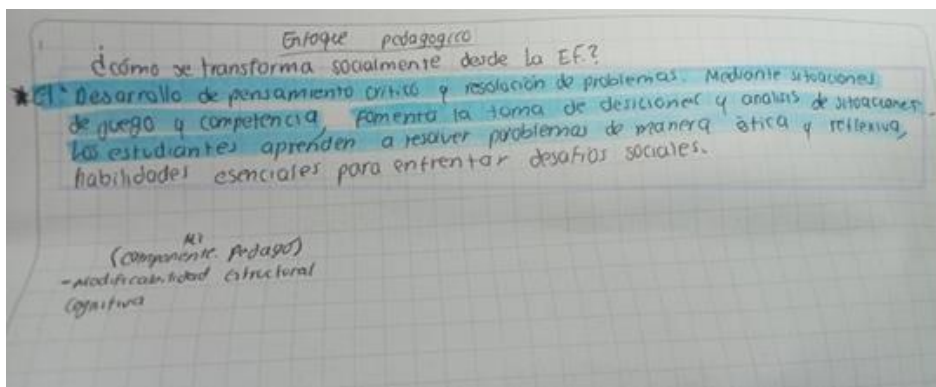 Enfoque pedagogico
¿cómo se transforma socialmente desde la EF.?
* El: Desarrollo de pensamiento crítico y resolución de problemas. Mediante situaciones
de guego y competencia, fomenta la toma de desiciones y analisis de situaciones.
Los estudiantes aprenden a resolver problemas de manera ética y reflexiva,
habilidades esenciales para enfrentar desafios sociales.
(componente pedago)
- Modificabilidad estructural
cognitiva